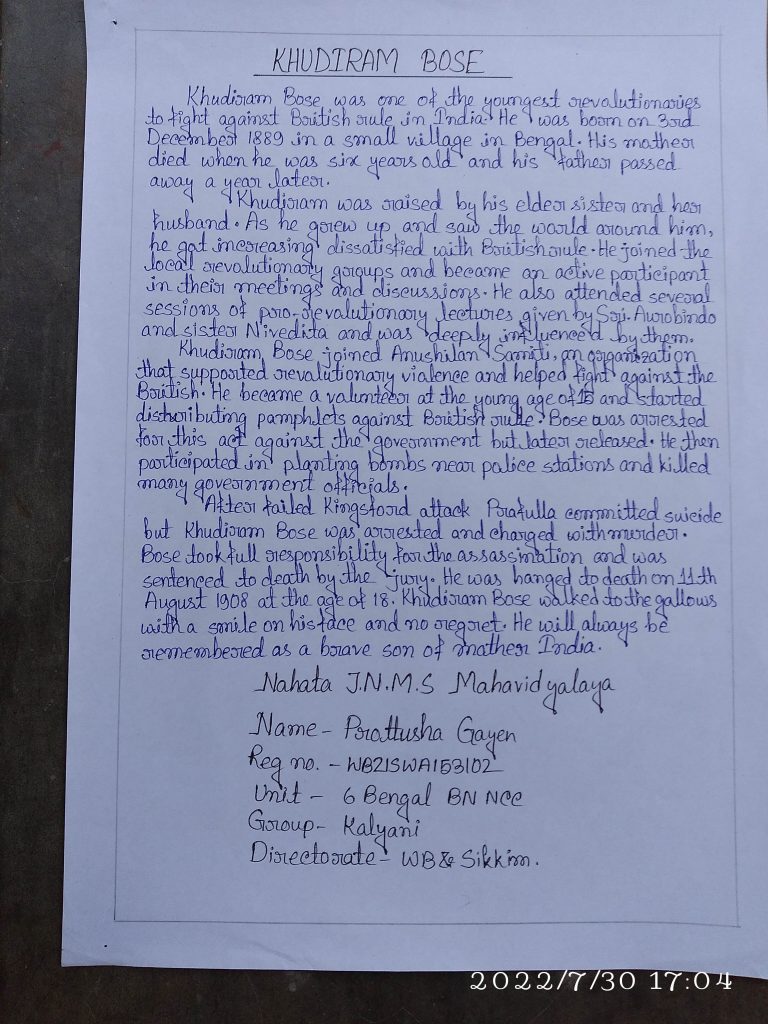 KHUDIRAM BOSE
Khudiram Bose was one of the youngest revolutionaries
to fight against British rule in India. He was born on 3rd
December 1889 in a small village in Bengal. His mother
died when he was six years old and his father passed
away a year later.
Khudiram was raised by his elder sister and her
husband. As he grew up and saw the world around him,
he got increasing dissatisfied with British rule. He joined the
local revolutionary groups and became an active participant
in their meetings and discussions. He also attended several
sessions of pro-revolutionary lectures given by Sri. Aurobindo
and sister Nivedita and was deeply influenced by them.
Khudiram Bose joined Anushilan Samiti, an organization
that supported revolutionary violence and helped fight against the
British. He became a volunteer at the young age of 15 and started
distributing pamphlets against British rule. Bose was arrested
for this act against the government but later released. He then
participated in planting bombs near police stations and killed
many government officials.
After failed Kingsford attack Prafulla committed suicide
but Khudiram Bose was arrested and charged with murder.
Bose took full responsibility for the assassination and was
sentenced to death by the jury. He was hanged to death on 11th
August 1908 at the age of 18. Khudiram Bose walked to the gallows
with a smile on his face and no regret. He will always be
remembered as a brave son of mother India.
Nahata J.N.M.S Mahavidyalaya
Name - Prattusha Gayen
Reg no. - WB21SWA153102
Unit - 6 Bengal BN NCC
Group - Kalyani
Directorate - WB & Sikkim.
2022/7/30 17:04